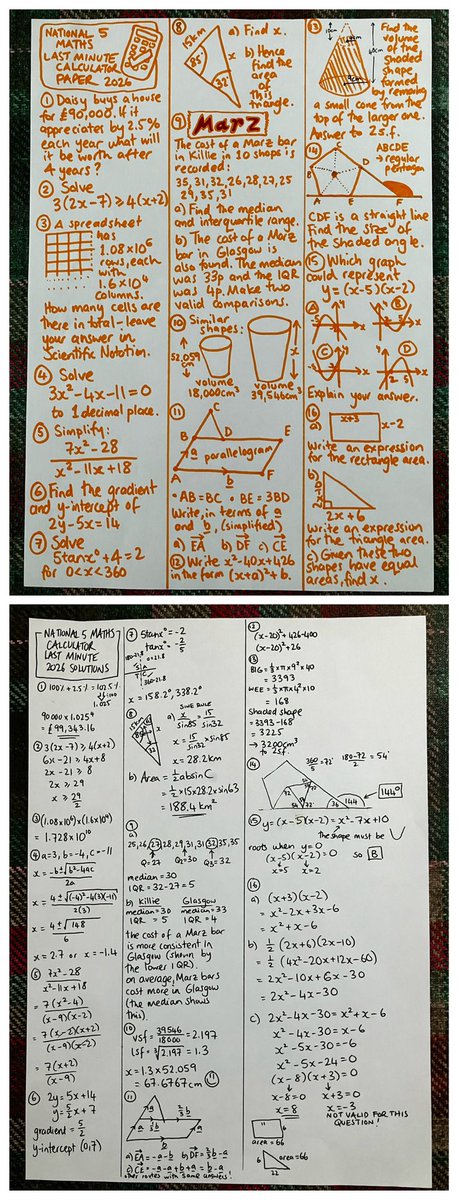 NATIONAL 5
MATHS
LAST MINUTE
CALCULATOR
PAPER 2026
① Daisy buys a house
for £90,000. If it
appreciates by 2.5%
each year what will
it be worth after
4 years?
② Solve
3(2x-7) ≥ 4(x+2)
③ A spreadsheet
has
1.08×10⁶
rows, each
with
1.6×10⁴
columns.
How many cells are
there in total - leave
your answer in
Scientific Notation.
④ Solve
3x²-4x-11=0
to 1 decimal place.
⑤ Simplify:
7x²-28
x²-11x+18
⑥ Find the gradient
and y-intercept of
2y-5x=14
⑦ Solve
5tanx°+4=2
for 0<x<360
⑧ a) Find x.
15km
85°
x
32°
b) Hence
find the
area
of
this
triangle.
⑨ Marz
The cost of a Marz bar
in Killie in 10 shops is
recorded:
35, 31, 32, 26, 28, 27, 25
29, 35, 31
a) Find the median
and interquartile range.
b) The cost of a Marz
bar in Glasgow is
also found. The median
was 33p and the IQR
was 4p. Make two
valid comparisons.
⑩ Similar
shapes:
52.059
cm
x
volume
18,000cm³
volume
39,546cm³
⑪
C
B
D
E
a
parallelogram
A
b
F
• AB=BC • BE=3BD
Write, in terms of a
and b, (simplified)
a) EA b) DF c) CE
⑫ Write x²-40x+426
in the form (x+a)²+b.
⑬
10cm
40cm
9cm
Find the
volume
of the
shaded
shape
formed
by removing
a small cone from the
top of the larger one.
Answer to 2s.f.
⑭
C
ABCDE
→ regular
pentagon
B
D
A
E
F
CDF is a straight line
Find the size of
the shaded angle.
⑮ Which graph
could represent
y=(x-5)(x-2)
A
B
C
D
Explain your answer.
⑯
a)
x+3
x-2
Write an expression
for the rectangle area.
b)
2x-10
2x+6
Write an expression
for the triangle area.
c) Given these two
shapes have equal
areas, find x.
NATIONAL 5 MATHS
CALCULATOR
LAST MINUTE
2026 SOLUTIONS
① 100%+2.5%=102.5%
÷100
1.025
90000×1.025⁴
= £99,343.16
② 3(2x-7)≥4(x+2)
6x-21≥4x+8
2x-21≥8
2x≥29
x≥29/2
③ (1.08×10⁶)×(1.6×10⁴)
=1.728×10¹⁰
④ a=3, b=-4, c=-11
x=-b±√b²-4ac
2a
x=4±√(-4)²-4(3)(-11)
2(3)
x=4±√148
6
x=2.7 or x=-1.4
⑤ 7x²-28
x²-11x+18
=7(x²-4)
(x-9)(x-2)
=7(x-2)(x+2)
(x-9)(x-2)
=7(x+2)
(x-9)
⑥ 2y=5x+14
y=5/2x+7
gradient=5/2
y-intercept (0,7)
⑦ 5tanx°=-2
tanx°=-2/5
180-21.8
S A
T C
360-21.8
x=158.2°, 338.2°
⑧
SINE RULE
a) x/sin85=15/sin32
x=15/sin32×sin85
x=28.2km
b) Area=½absinC
=½×15×28.2×sin63
=188.4km²
⑨
a)
25, 26, 27, 28, 29, 31, 31, 32, 35, 35
Q₁=27 Q₂=30 Q₃=32
median=30
IQR=32-27=5
b) Killie Glasgow
median=30 median=33
IQR=5 IQR=4
the cost of a Marz bar
is more consistent in
Glasgow (shown by
the lower IQR).
on average, Marz bars
cost more in Glasgow
(the median shows
this).
⑩
vsf=39546/18000=2.197
lsf=³√2.197=1.3
x=1.3×52.059
=67.6767cm
⑪
a
⅓b
⅔b
a
a
b
a) EA=-a-b b) DF=⅔b-a
c) CE=-a-a+b+a=b-a
other routes with same answers!
⑫
(x-20)²+426-400
(x-20)²+26
⑬
BIG=⅓×π×9²×40
=3393
WEE=⅓×π×4²×10
=168
Shaded shape
=3393-168
=3225
→3200cm³
to 2sf.
⑭
360/5=72°
180-72/2=54°
72
54
36
144
144°
⑮ y=(x-5)(x-2)=x²-7x+10
the shape must be
roots when y=0
(x-5)(x-2)=0 so B
x=5 x=2
⑯
a) (x+3)(x-2)
=x²-2x+3x-6
=x²+x-6
b) ½(2x+6)(2x-10)
=½(4x²-20x+12x-60)
=2x²-10x+6x-30
=2x²-4x-30
c) 2x²-4x-30=x²+x-6
x²-4x-30=x-6
x²-5x-30=-6
x²-5x-24=0
(x-8)(x+3)=0
x-8=0 x+3=0
x=8 x=-3
NOT VALID FOR THIS
QUESTION!
11
6
area=66
6
22
area=66